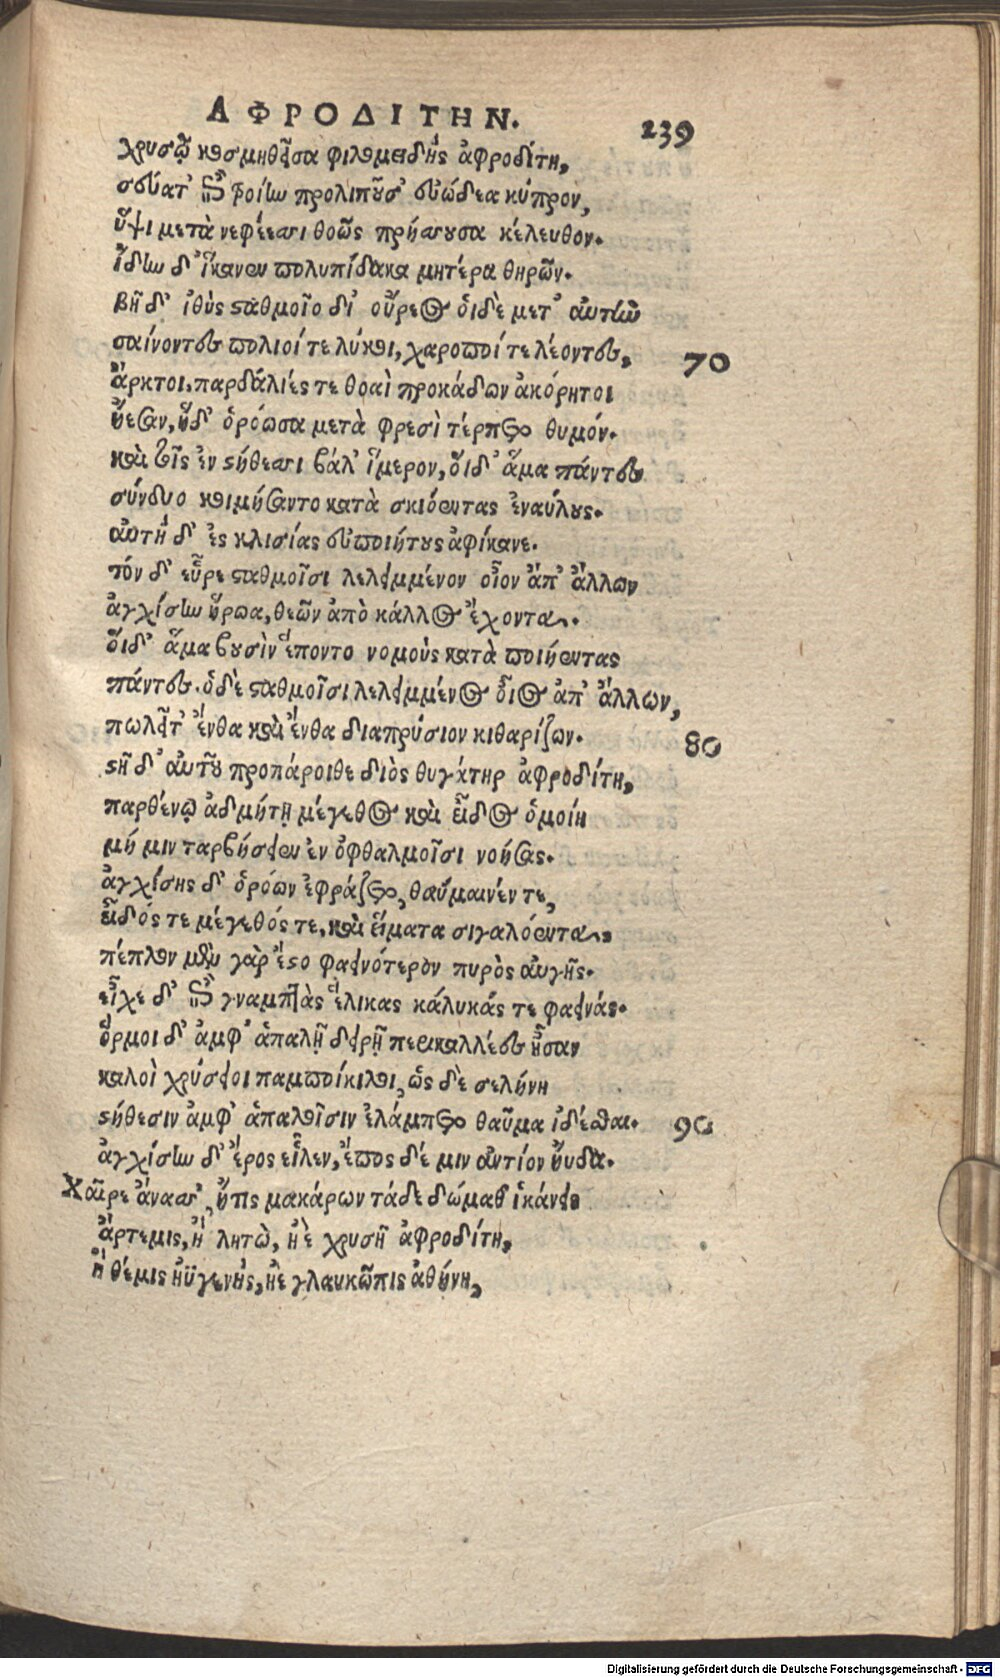 ΑΦΡΟΔΙΤΗΝ.
239
χρυσῷ κοσμηθεῖσα φιλομειδὴς ἀφροδίτη,
σεύατ' ἐπὶ τροίην προλιποῦσ' εὐώδεα κύπρον,
ὕψι μετὰ νεφέεσσι θοῶς πρήσσουσα κέλευθον.
ἴδην δ' ἵκανεν πολυπίδακα μητέρα θηρῶν.
βῆ δ' ἰθὺς σταθμοῖο δι' οὔρεος· οἱ δὲ μετ' αὐτὴν
σαίνοντες πολιοί τε λύκοι, χαροποί τε λέοντες, 70
ἄρκτοι, παρδάλιές τε θοαὶ προκάδων ἀκόρητοι
ἤεσαν, ἡ δ' ὁρόωσα μετὰ φρεσὶ τέρπετο θυμόν.
καὶ τοῖς ἐν στήθεσσι βάλ' ἵμερον, οἱ δ' ἅμα πάντες
σύνδυο κοιμήσαντο κατὰ σκιόεντας ἐναύλους.
αὐτὴ δ' ἐς κλισίας εὐποιήτους ἀφίκανε.
τὸν δ' εὗρε σταθμοῖσι λελειμμένον οἶον ἀπ' ἄλλων
ἀγχίσην ἥρωα, θεῶν ἀπὸ κάλλος ἔχοντα.
οἱ δ' ἅμα βουσὶν ἕποντο νομοὺς κατὰ ποιήεντας
πάντες. ὁ δὲ σταθμοῖσι λελειμμένος οἶος ἀπ' ἄλλων,
πωλεῖτ' ἔνθα καὶ ἔνθα διαπρύσιον κιθαρίζων. 80
στῆ δ' αὐτοῦ προπάροιθε διὸς θυγάτηρ ἀφροδίτη,
παρθένῳ ἀδμήτῃ μέγεθος καὶ εἶδος ὁμοίη
μή μιν ταρβήσειεν ἐν ὀφθαλμοῖσι νοήσας.
ἀγχίσης δ' ὁρόων ἐφράζετο, θαύμαινέν τε,
εἶδός τε μέγεθός τε, καὶ εἵματα σιγαλόεντα.
πέπλον μὲν γὰρ ἕεστο φαεινότερον πυρὸς αὐγῆς.
εἶχε δ' ἐπὶ γναμπτὰς ἕλικας κάλυκάς τε φαεινάς.
ὅρμοι δ' ἀμφ' ἁπαλῇ δειρῇ περικαλλέες ἦσαν
καλοὶ χρύσειοι παμποίκιλοι, ὡς δὲ σελήνη
στήθεσιν ἀμφ' ἁπαλοῖσιν ἐλάμπετο θαῦμα ἰδέσθαι. 90
ἀγχίσην δ' ἔρος εἷλεν, ἔπος δέ μιν ἀντίον ηὔδα.
Χαῖρε ἄνασσ', ἥτις μακάρων τάδε δώμαθ' ἱκάνεις
ἄρτεμις, ἢ λητὼ, ἠὲ χρυσῆ ἀφροδίτη,
ἢ θέμις ἠϋγενὴς, ἠὲ γλαυκῶπις ἀθήνη,
Digitalisierung gefördert durch die Deutsche Forschungsgemeinschaft - DFG